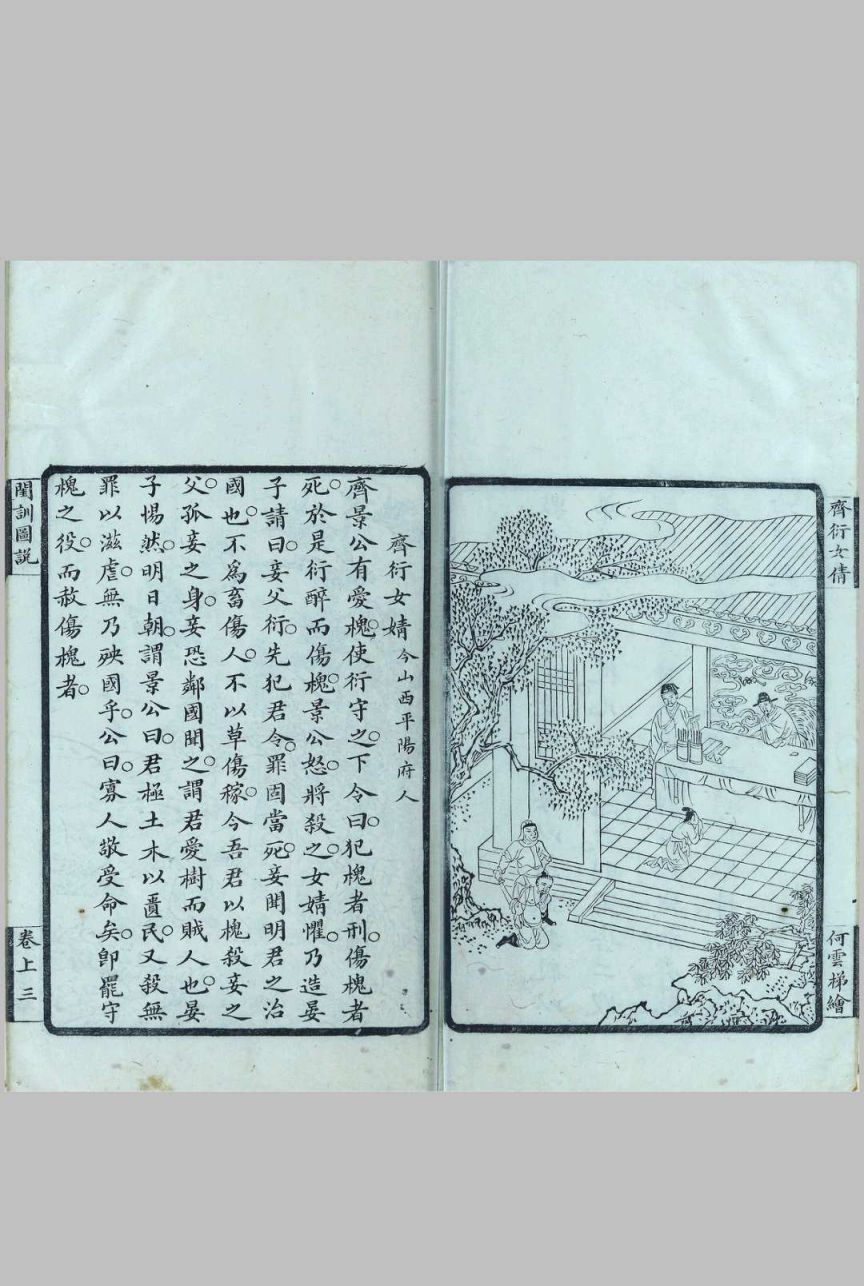 齊衍女倩
何雲梯繪
齊衍女婧 今山西平陽府人
齊景公有愛槐。使衍守之。下令曰。犯槐者刑。傷槐者
死。於是衍醉而傷槐。景公怒。將殺之。女婧懼。乃造晏
子請曰。妾父衍。先犯君令。罪固當死。妾聞明君之治
國也。不爲畜傷人。不以草傷稼。今吾君以槐殺妾之
父。孤妾之身。妾恐鄰國聞之。謂君愛樹而賊人也。晏
子惕然。明日朝。謂景公曰。君極土木以匱民。又殺無
罪以滋虐。無乃殃國乎。公曰。寡人敬受命矣。卽罷守
槐之役。而赦傷槐者。
閨訓圖說
卷上 三